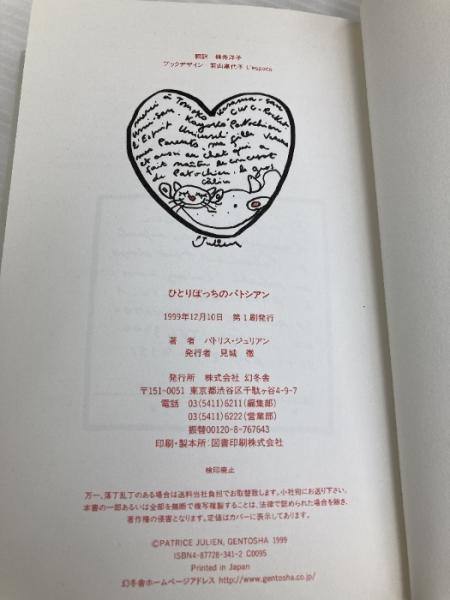 翻訳 楠木洋子
ブックデザイン 若山嘉代子 L'espace
merci à Tomoko
GWG. Rocket
Kazuko Patochien
l'Esprit
ma fille
mes Parents
et aussi au chat qui a
fait naître le concept
de Patochien, le gros
câlin
Julien
ひとりぼっちのパトシアン
1999年12月10日 第1刷発行
著 者 パトリス・ジュリアン
発行者 見城 徹
発行所 株式会社 幻冬舎
〒151-0051 東京都渋谷区千駄ヶ谷4-9-7
電話 03(5411)6211(編集部)
03(5411)6222(営業部)
振替00120-8-767643
印刷・製本所:図書印刷株式会社
検印廃止
万一、落丁乱丁のある場合は送料当社負担でお取替致します。小社宛にお送り下さい。
本書の一部あるいは全部を無断で複写複製することは、法律で認められた場合を除き、
著作権の侵害となります。定価はカバーに表示してあります。
©PATRICE JULIEN, GENTOSHA 1999
ISBN4-87728-341-2 C0095
Printed in Japan
幻冬舎ホームページアドレス http://www.gentosha.co.jp/